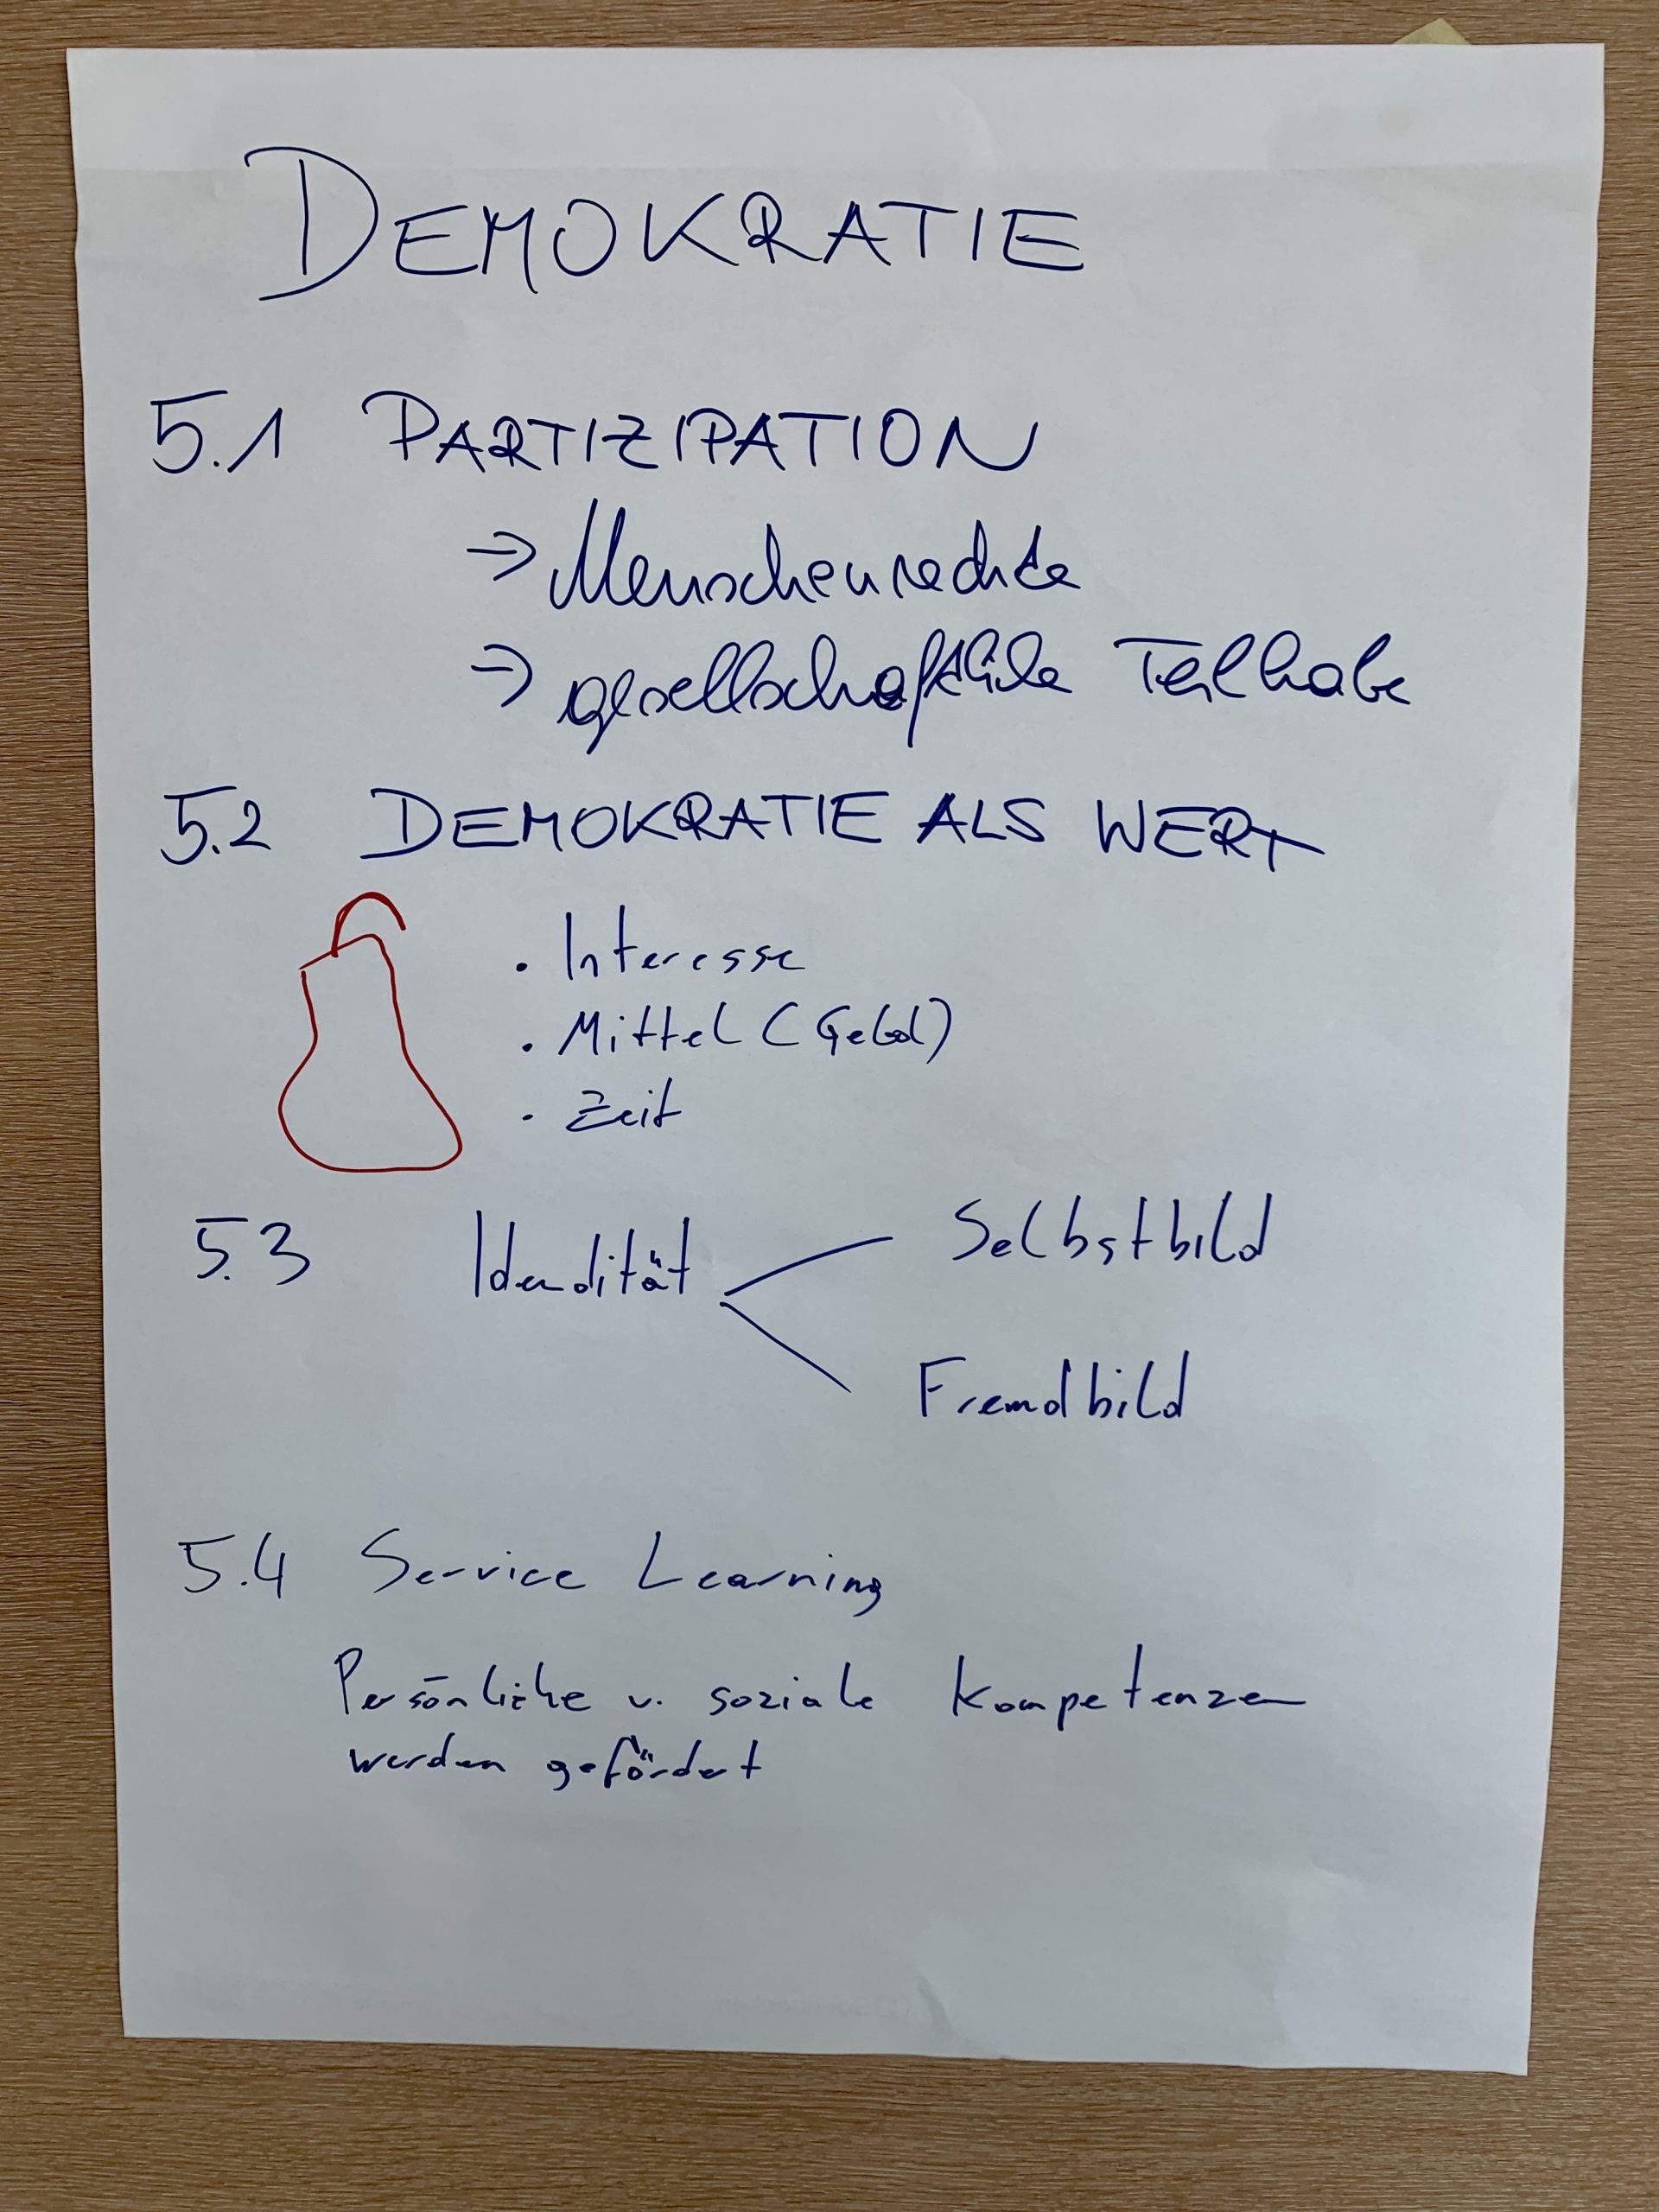 DEMOKRATIE
5.1 PARTIZIPATION
→ Menschenrechte
→ gesellschaftliche Teilhabe
5.2 DEMOKRATIE ALS WERT
· Interesse
· Mittel (Geld)
· Zeit
5.3 Idendität
Selbstbild
Fremdbild
5.4 Service Learning
Persönliche u. soziale Kompetenzen
werden gefördert